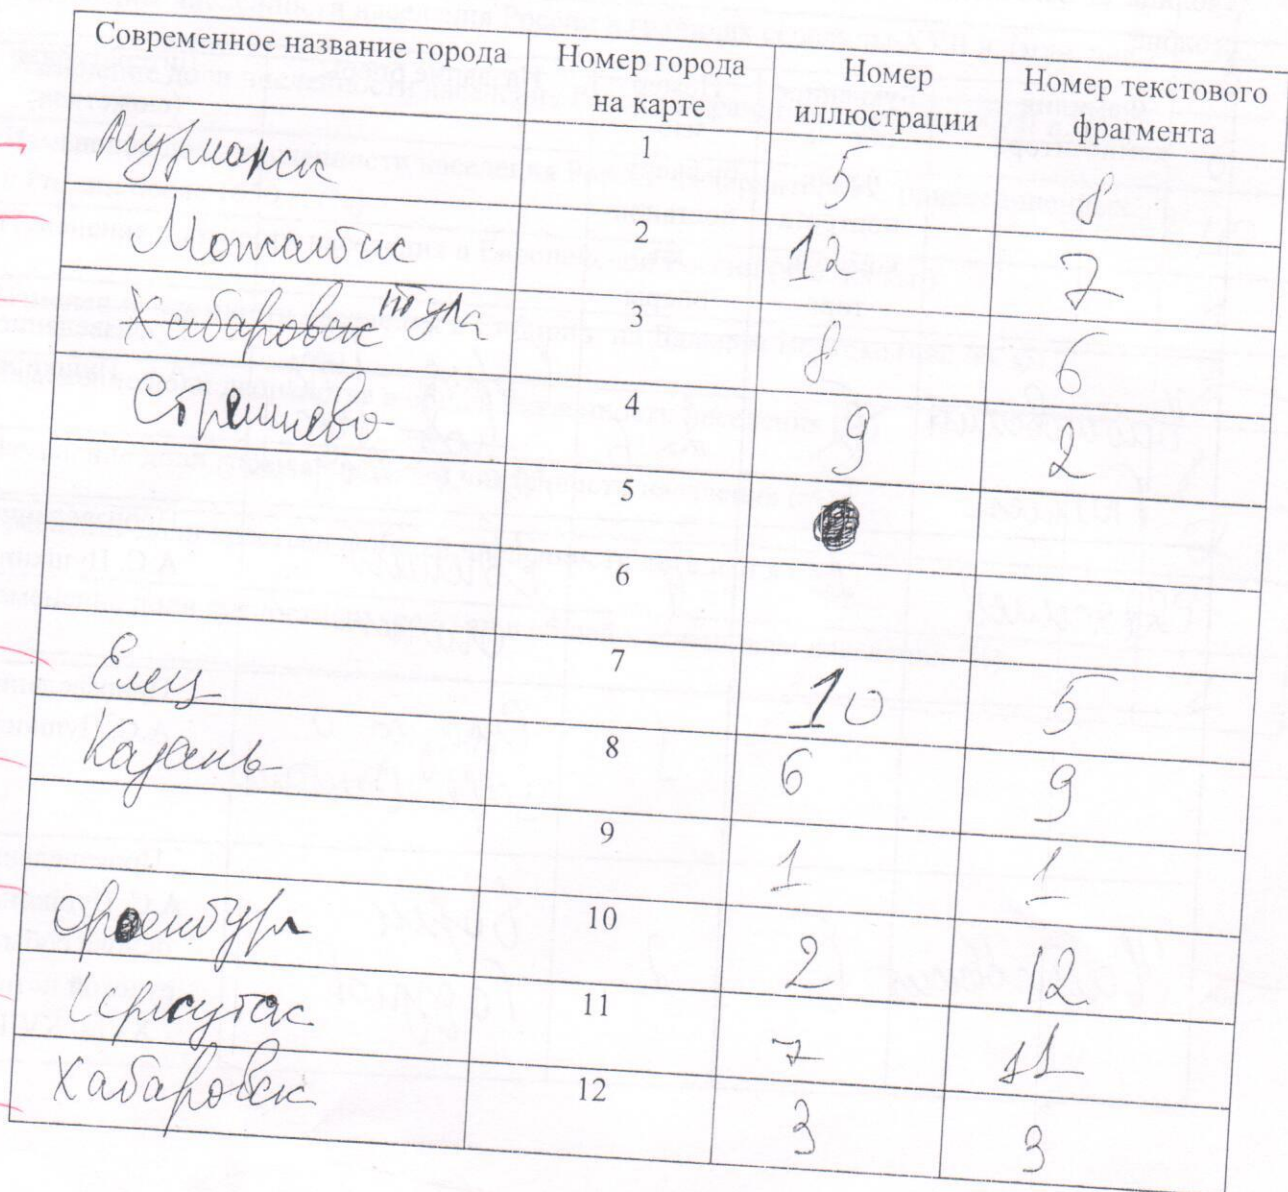 Современное название города Номер города на карте Номер иллюстрации Номер текстового фрагмента
Мурманск 1 5 8
Можайск 2 12 7
Хабаровск Тула 3 8 6
4 9 2
5
6
Елец 7 10 5
Казань 8 6 9
9 1 1
Оренбург 10 2 12
Иркутск 11 7 11
Хабаровск 12 3 3